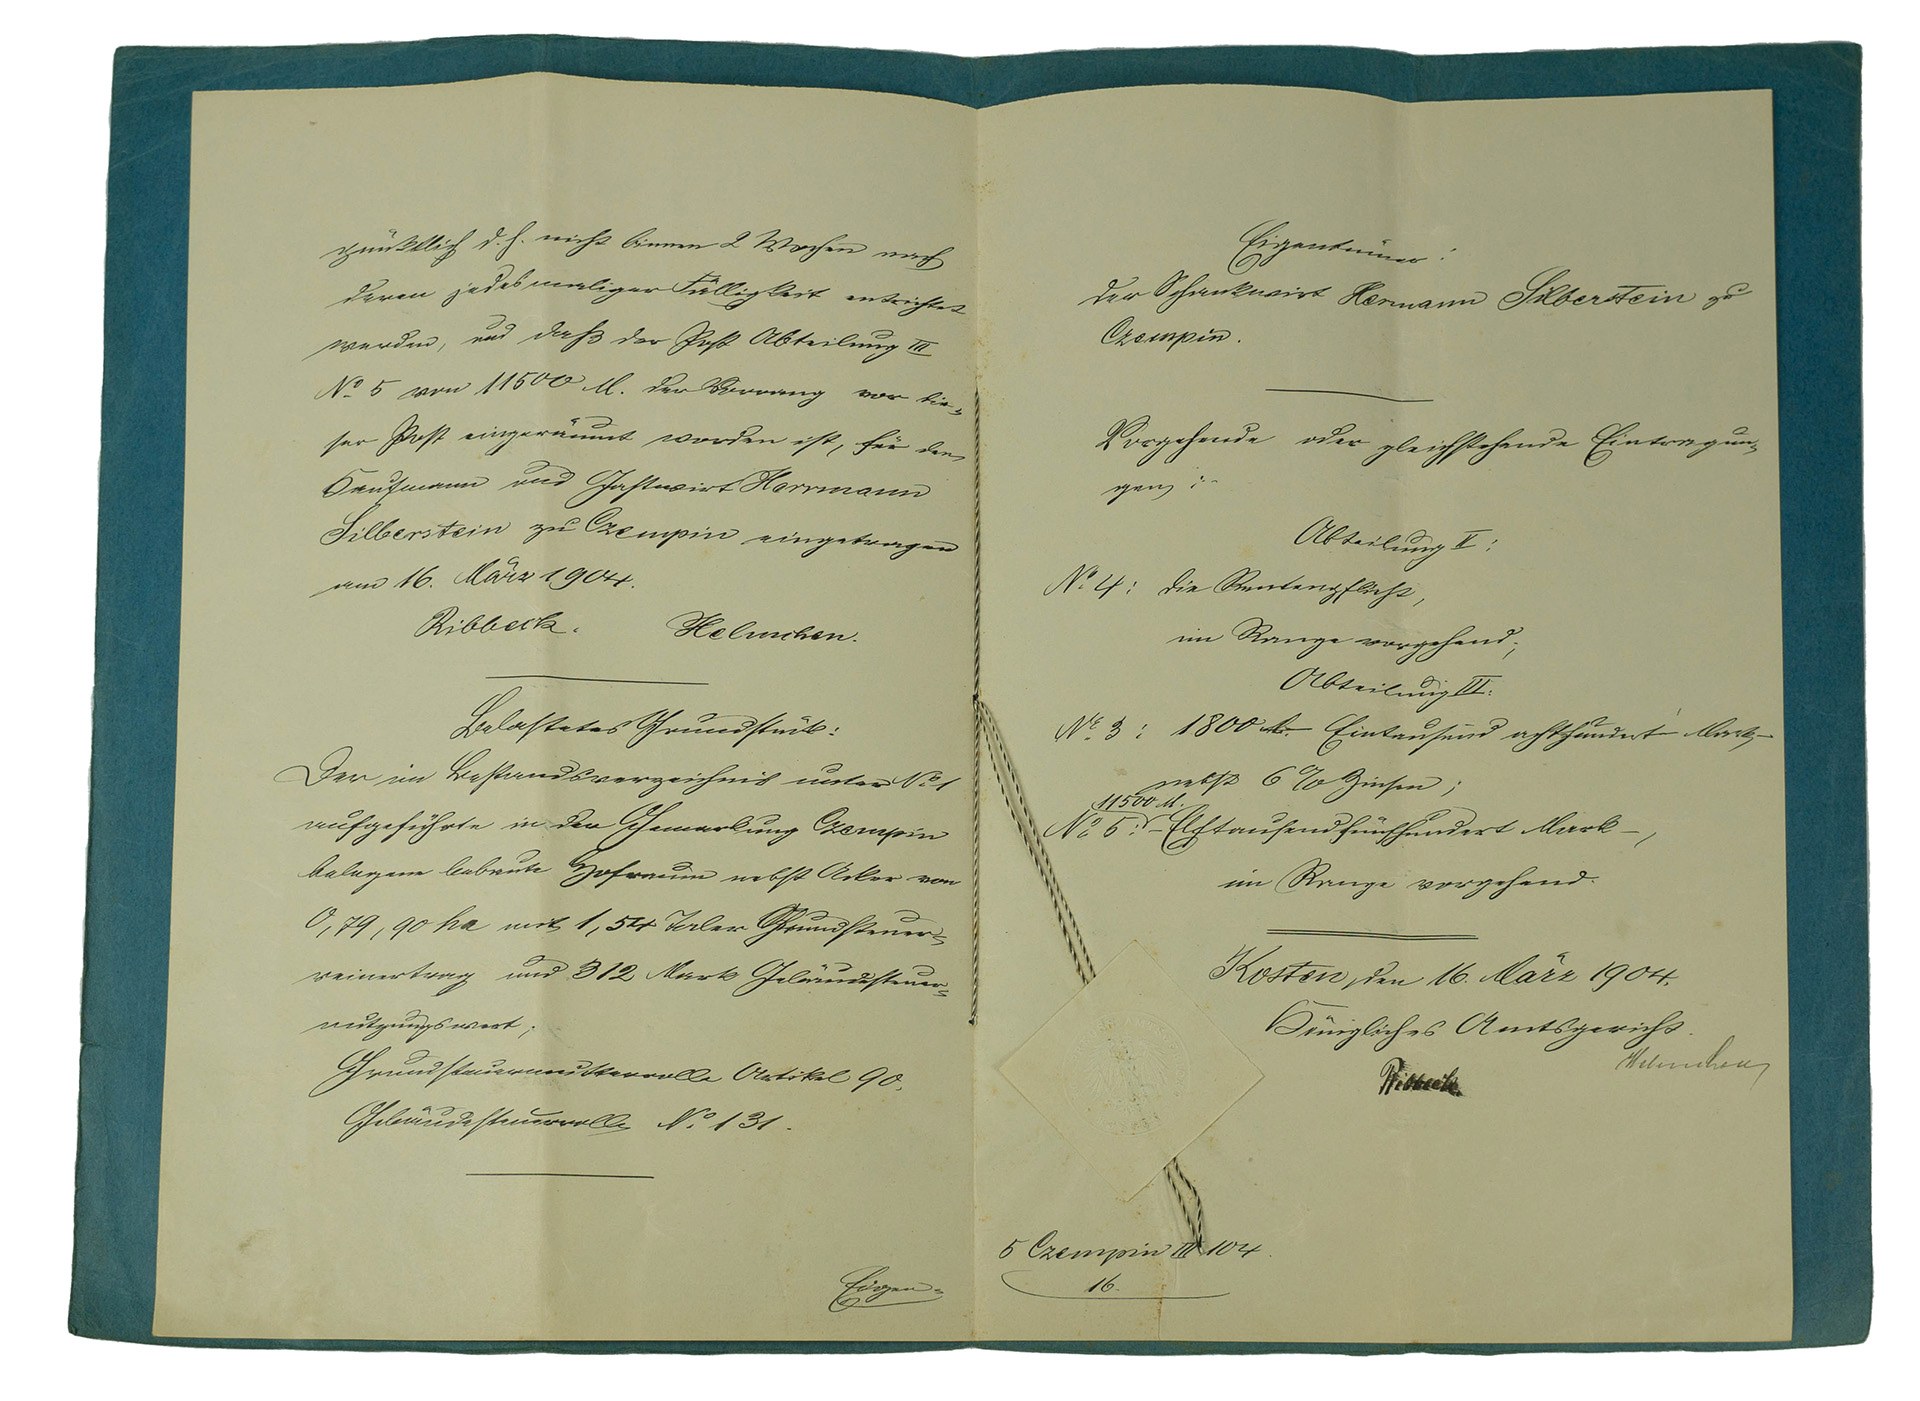 pünktlich d. h. nicht binnen 2 Wochen nach
deren jedesmaliger Fälligkeit entrichtet
werden, und daß der Post Abteilung III
No 5 von 11500 M. der Vorrang vor die-
ser Post eingeräumt worden ist, für den
Kaufmann und Gastwirt Herrmann
Silberstein zu Czempin eingetragen
am 16. März 1904.
Ribbeck. Helmchen.
Belastetes Grundstück:
Der im Bestandsverzeichnis unter No 1
aufgeführte in der Gemarkung Czempin
belegene bebaute Hofraum nebst Acker von
0,79,90 ha mit 1,54 Taler Grundsteuer-
reinertrag und 312 Mark Gebäudesteuer-
nutzungswert;
Grundsteuermutterrolle Artikel 90,
Gebäudesteuerrolle No 131.
Eigen-
Eigentümer:
der Schankwirt Hermann Silberstein zu
Czempin.
Vorgehende oder gleichstehende Eintragun-
gen:
Abteilung II:
No 4: die Rentenpflicht,
im Range vorgehend;
Abteilung III:
No 3: 1800 M. – Eintausend achthundert Mark –
nebst 6 % Zinsen;
11500 M.
No 5: – Elftausendfünfhundert Mark –,
im Range vorgehend.
Kosten, den 16. März 1904.
Königliches Amtsgericht.
Ribbeck. Helmchen
5 Czempin III 104
16.